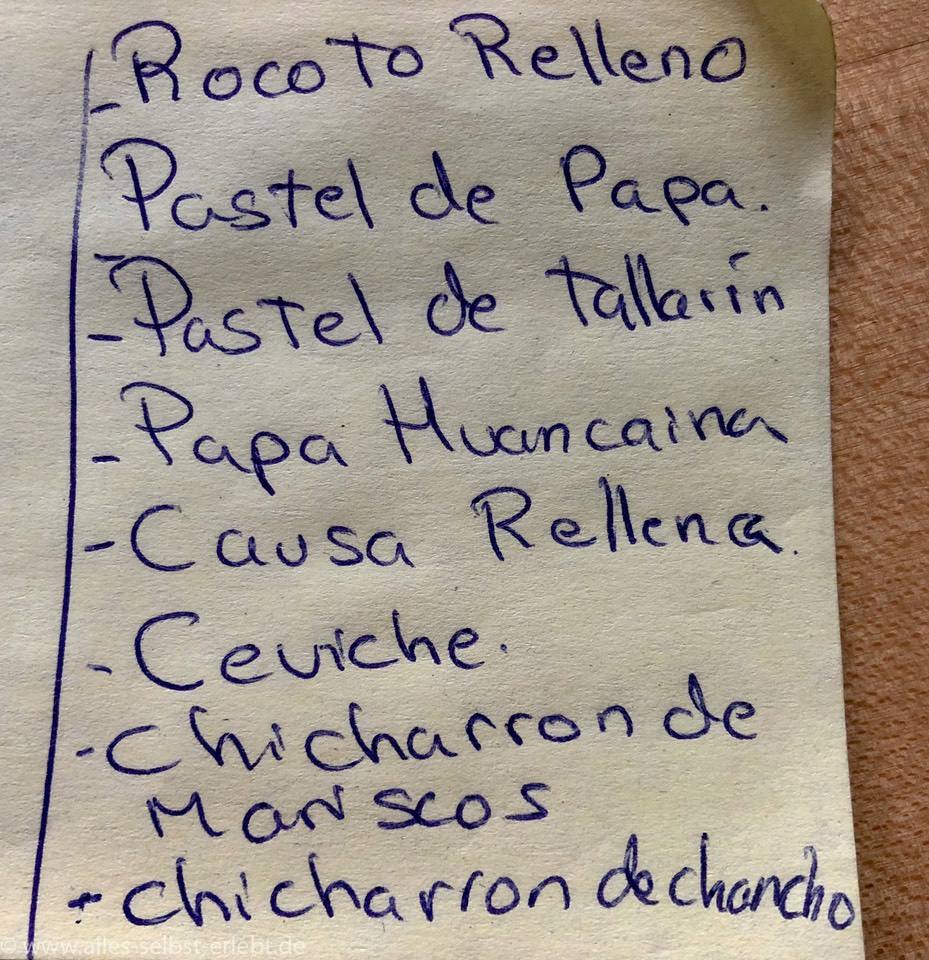 - Rocoto Relleno
Pastel de Papa.
- Pastel de tallarin
- Papa Huancaina
- Causa Rellena.
- Ceviche.
- Chicharron de
Mariscos
- chicharron de chancho
© www.alles-selbst-erlebt.de